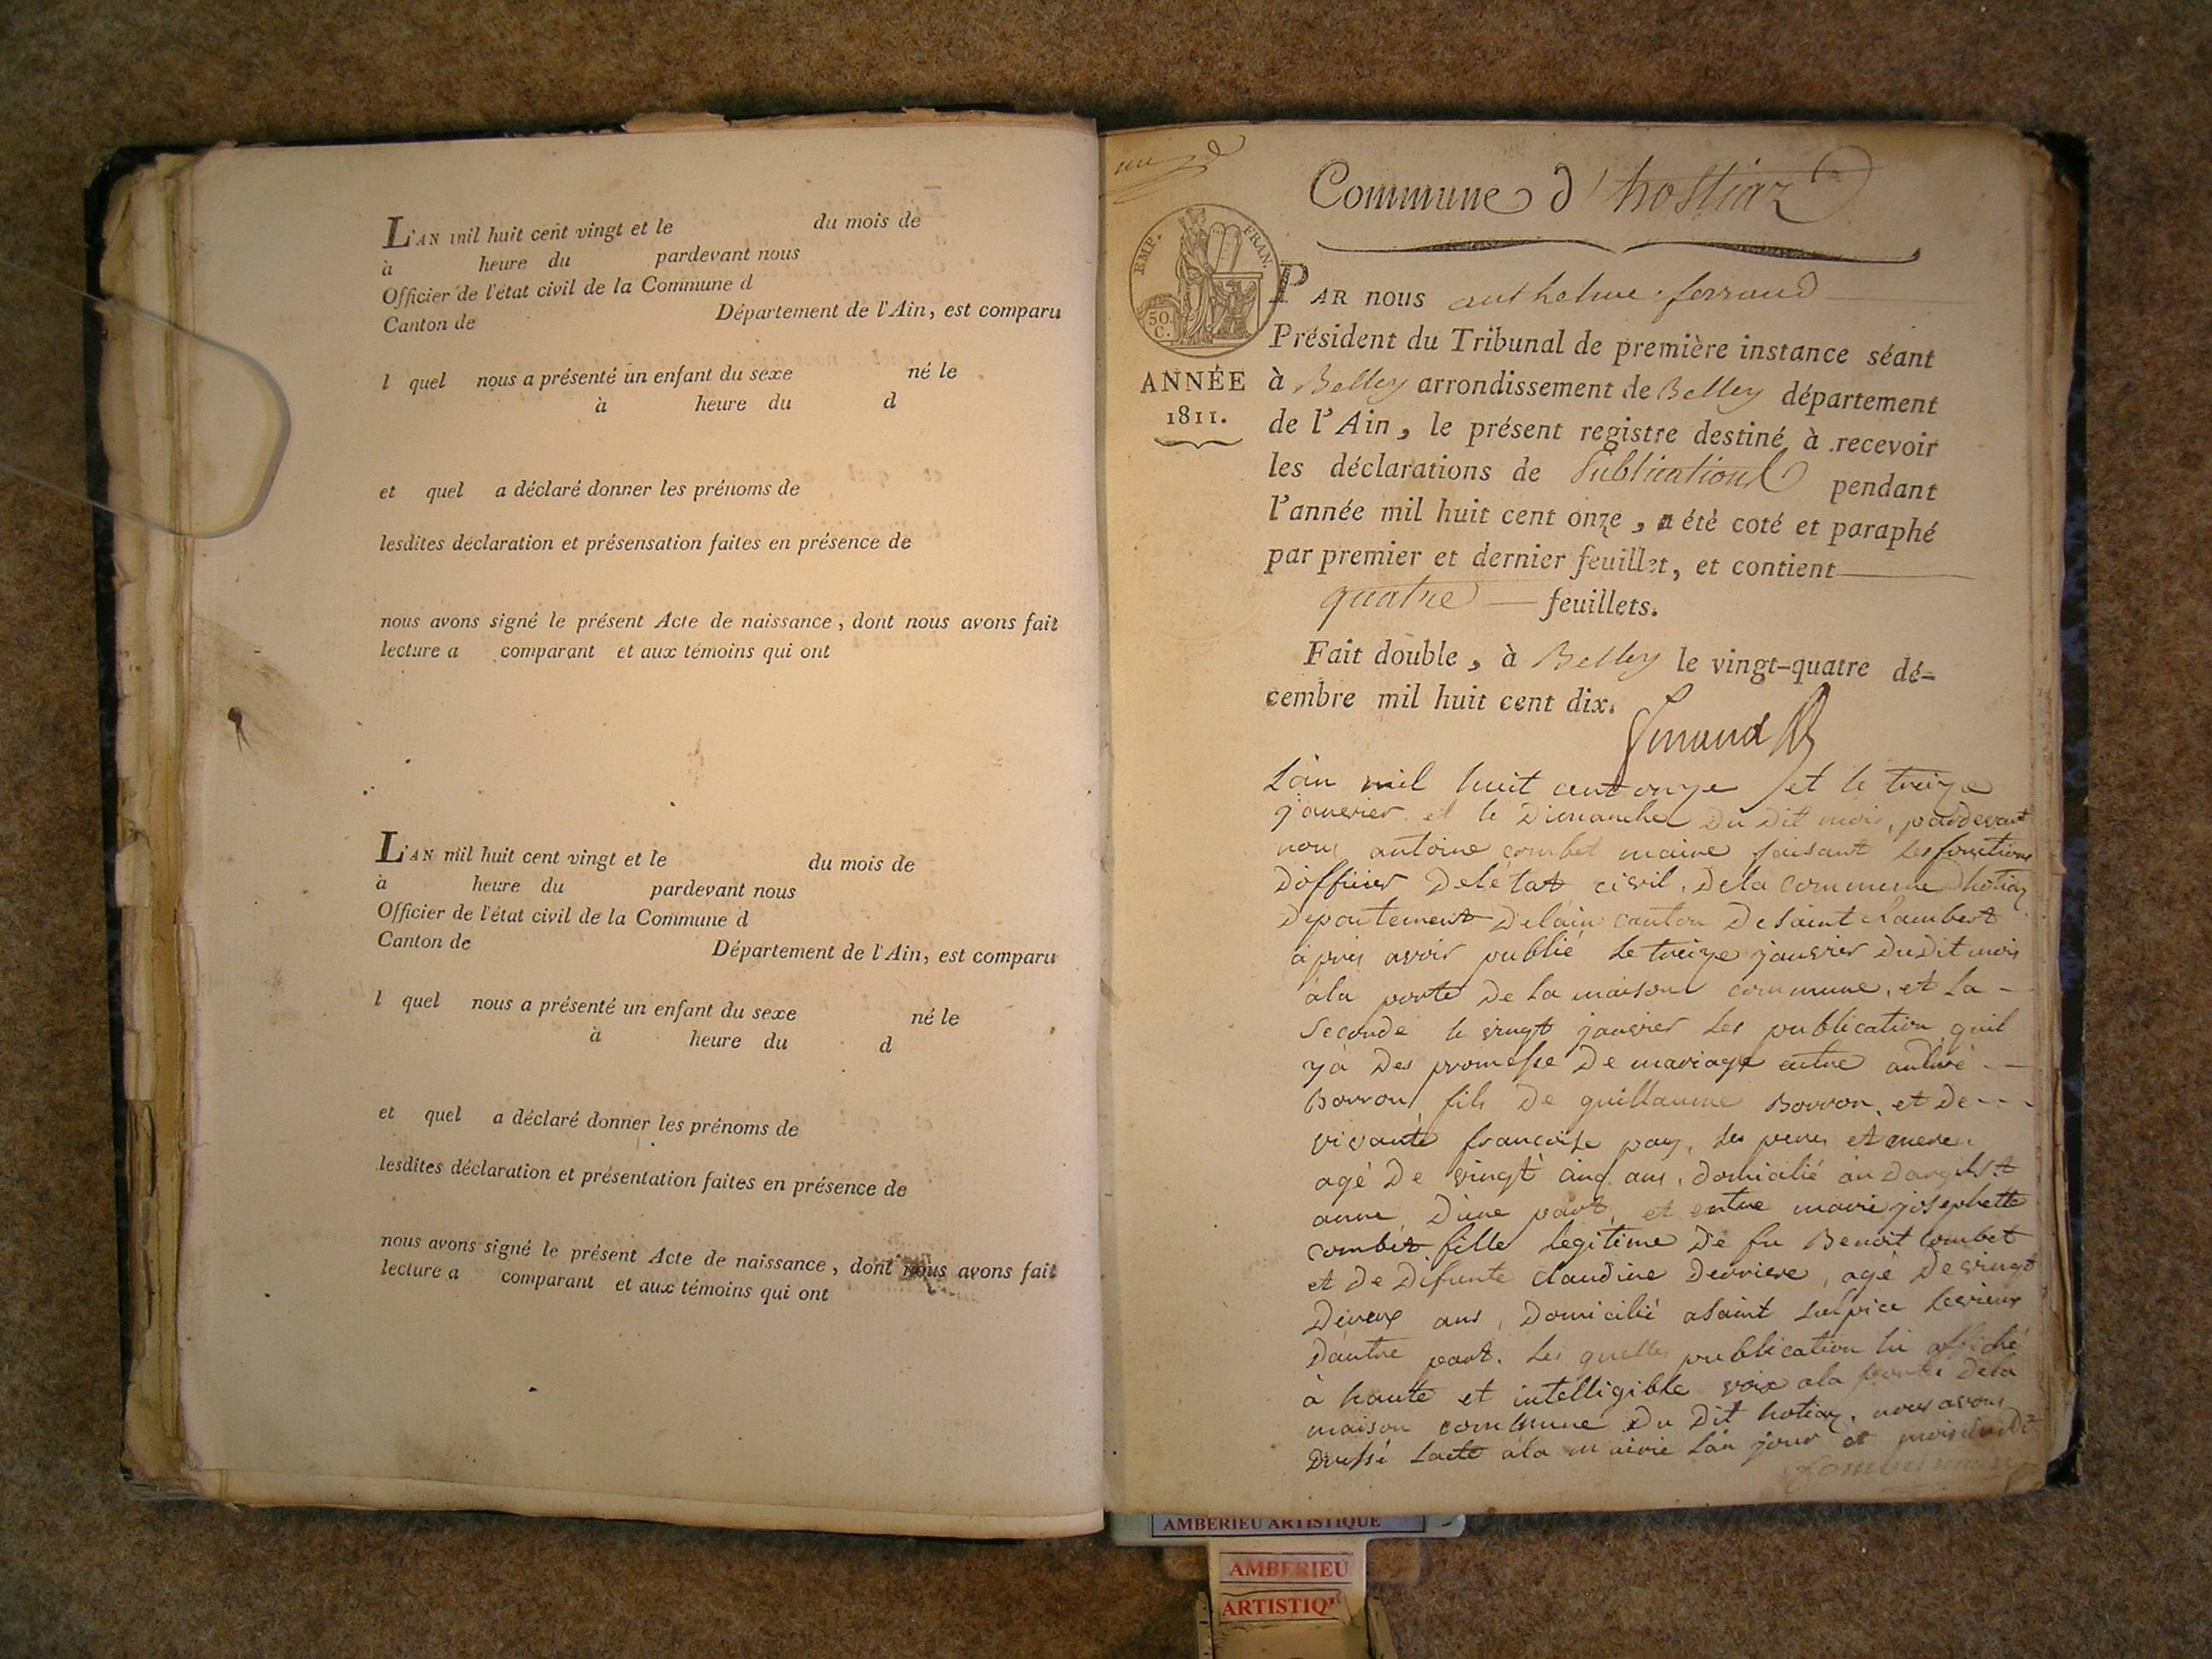 L'AN mil huit cent vingt et le du mois de
à heure du pardevant nous
Officier de l'état civil de la Commune d
Canton de Département de l'Ain, est comparu
l quel nous a présenté un enfant du sexe né le
à heure du d
et quel a déclaré donner les prénoms de
lesdites déclaration et présensation faites en présence de
nous avons signé le présent Acte de naissance, dont nous avons fait
lecture a comparant et aux témoins qui ont
L'AN mil huit cent vingt et le du mois de
à heure du pardevant nous
Officier de l'état civil de la Commune d
Canton de Département de l'Ain, est comparu
l quel nous a présenté un enfant du sexe né le
à heure du d
et quel a déclaré donner les prénoms de
lesdites déclaration et présentation faites en présence de
nous avons signé le présent Acte de naissance, dont nous avons fait
lecture a comparant et aux témoins qui ont
Commune d'hostiaz
EMP. FRAN.
50. C.
ANNÉE
1811.
PAR nous anthelme ferrand
Président du Tribunal de première instance séant
à Belley arrondissement de Belley département
de l'Ain, le présent registre destiné à recevoir
les déclarations de Publications pendant
l'année mil huit cent onze, a été coté et paraphé
par premier et dernier feuillet, et contient
quatre feuillets.
Fait double, à Belley le vingt-quatre dé-
cembre mil huit cent dix.
L'an mil huit cent onze et le treize
janvier et le Dimanche Du Dit mois, pardevant
nous antoine combet maire faisant les fonctions
D'officier De létat civil, De la commune Dhotiaz
Departement Delain canton De saint Rambert
après avoir publié le treize janvier Du Dit mois
àla porte De La maison commune, et La -
Seconde le vingt janvier les publication quil
yà Des promesse De mariage entre andré
Borron fils De guillaume Borron, et De
vivante francoise pay, ses peres et mere
agé De vingt cinq ans, Domicilié
Dune part, et entre marie josephette
combet fille legitime De fu Benoit Combet
et De Difunte claudine Derriere, agé De vingt
Deveux ans, Domicilié asaint sulpice levieux
Dautre part. Les quelles publication lu affiché
à haute et intelligible voix ala porte Dela
maison commune Du Dit hotiaz, nous avons
Dressé Lacte àla mairie Lan jour et mois
AMBERIEU ARTISTIQUE
AMBERIEU
ARTISTIQ